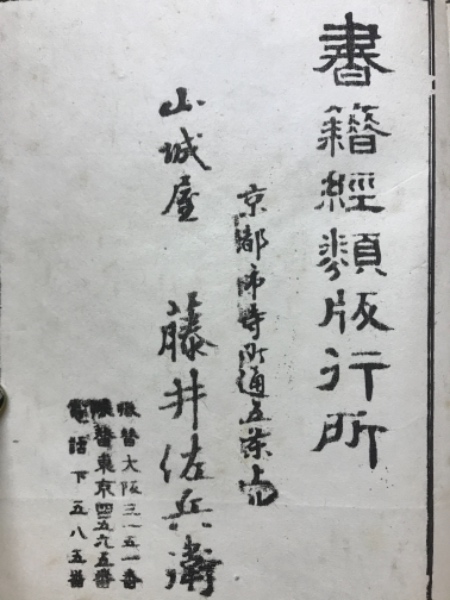 書籍經類版行所
京都市寺町通五条上
山城屋 藤井佐兵衞
振替大阪三一五一番
振替東京四五六五番
電話下五八五番